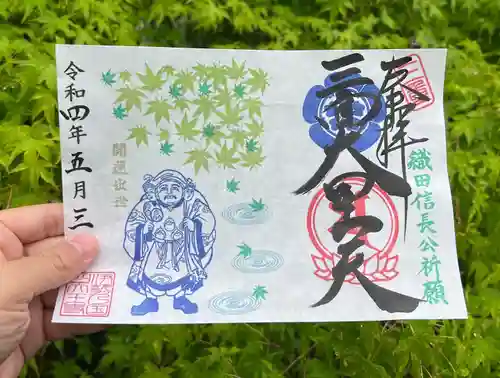 奉拝
三面大黒天
織田信長公祈願
開運出世
令和四年五月三